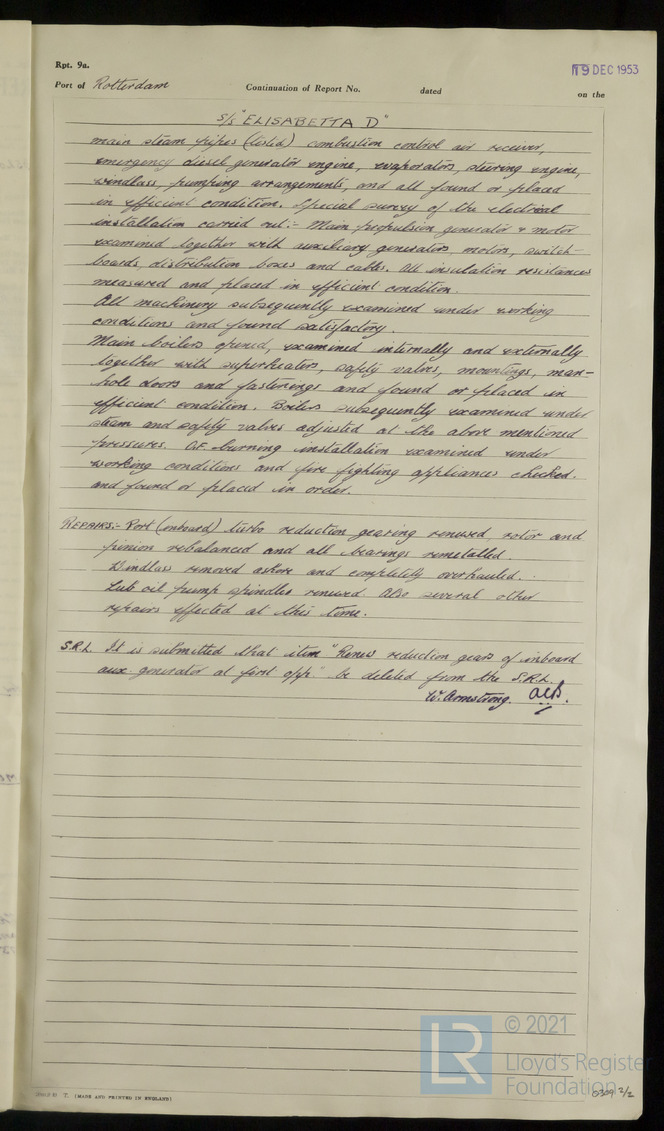 Rpt. 9a.
19 DEC 1953
Port of Rotterdam Continuation of Report No. dated on the
s/s "ELISABETTA D"
main steam pipes (tested) combustion control air receiver,
emergency diesel generator engine, evaporators, steering engine,
windlass, pumping arrangements, and all found or placed
in efficient condition. Special survey of the electrical
installation carried out:- Main propulsion generator & motor
examined together with auxiliary generators, motors, switch-
boards, distribution boxes and cables. All insulation resistances
measured and placed in efficient condition.
All machinery subsequently examined under working
conditions and found satisfactory.
Main boilers opened, examined internally and externally
together with superheaters, safety valves, mountings, man-
hole doors and fastenings and found or placed in
efficient condition. Boilers subsequently examined under
steam and safety valves adjusted at the above mentioned
pressures. O.F. burning installation examined under
working conditions and fire fighting appliances checked.
and found or placed in order.
REPAIRS:- Port (inboard) turbo reduction gearing renewed, rotor and
pinion rebalanced and all bearings remetalled.
Windlass removed ashore and completely overhauled.
Lub oil pump spindles renewed. Also several other
repairs effected at this time.
S.R.L. It is submitted that item "Renew reduction gears of inboard
aux generator at first opp" be deleted from the S.R.L.
W. Armstrong.
(MADE AND PRINTED IN ENGLAND)
LR
© 2021
Lloyd's Register
Foundation
0309 2/2